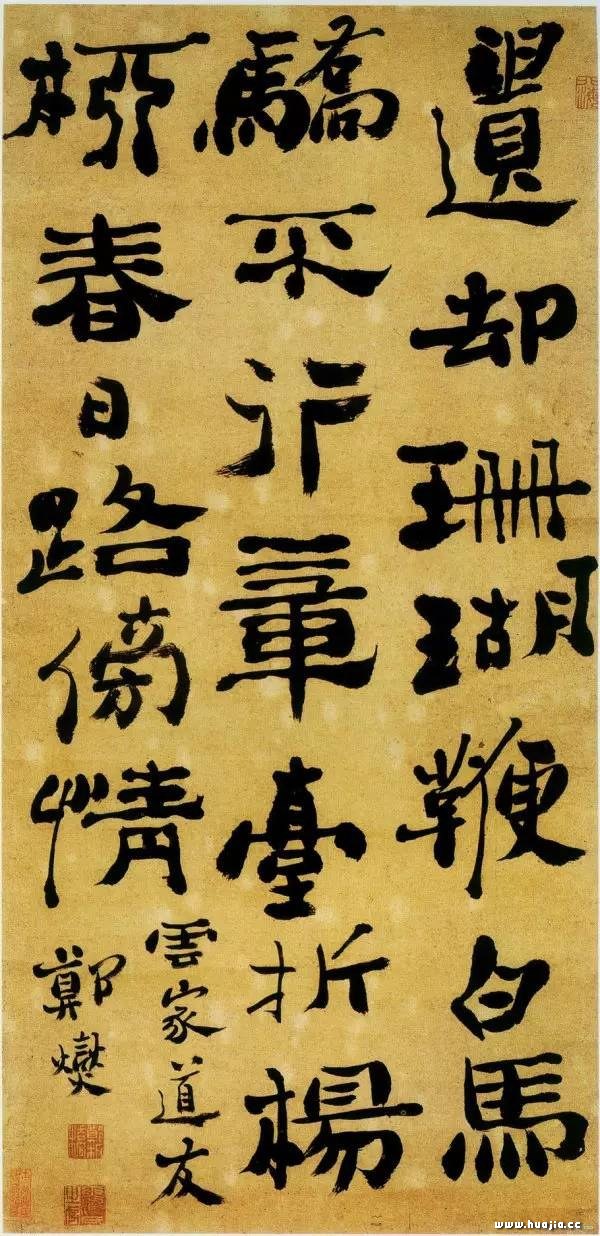 遺却珊瑚鞭白馬
驕不行章臺折楊
桺春日路傍情
雲家道友
鄭燮
www.huajia.cc